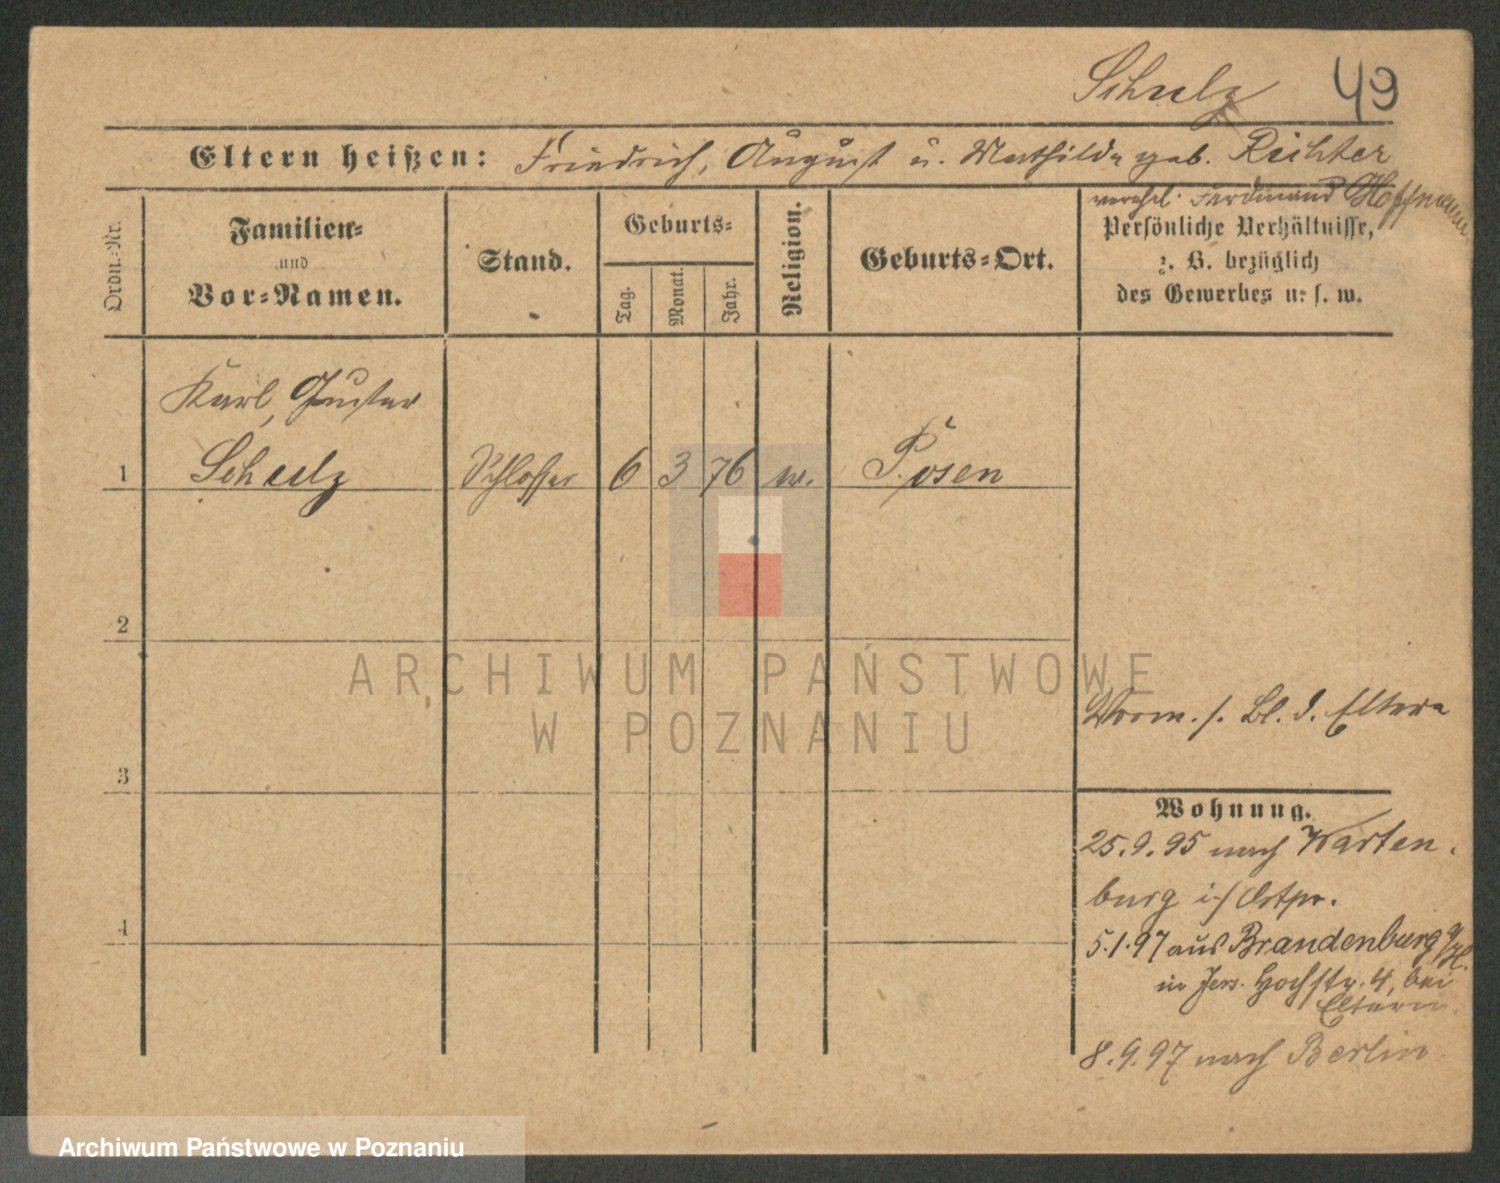 Schulz 49
Eltern heißen: Friedrich, August u. Mathilde geb. Richter
verehel. Ferdinand Hoffmann
Ordn.-Nr.
Familien-
und
Vor-Namen.
Stand.
Geburts-
Tag.
Monat.
Jahr.
Religion.
Geburts-Ort.
Persönliche Verhältnisse,
z. B. bezüglich
des Gewerbes u. s. w.
Karl, Gustav
1 Schulz Schlosser 6 3 76 w. Posen
2
ARCHIWUM PAŃSTWOWE
W POZNANIU
Vorm. s. Bl. d. Eltern
3
Wohnung.
25.9.95 nach Warten-
burg i/ Ostpr.
4
5.1.97 aus Brandenburg a/H.
in Jers. Hochstr. 4, bei
Eltern.
8.9.97 nach Berlin
Archiwum Państwowe w Poznaniu